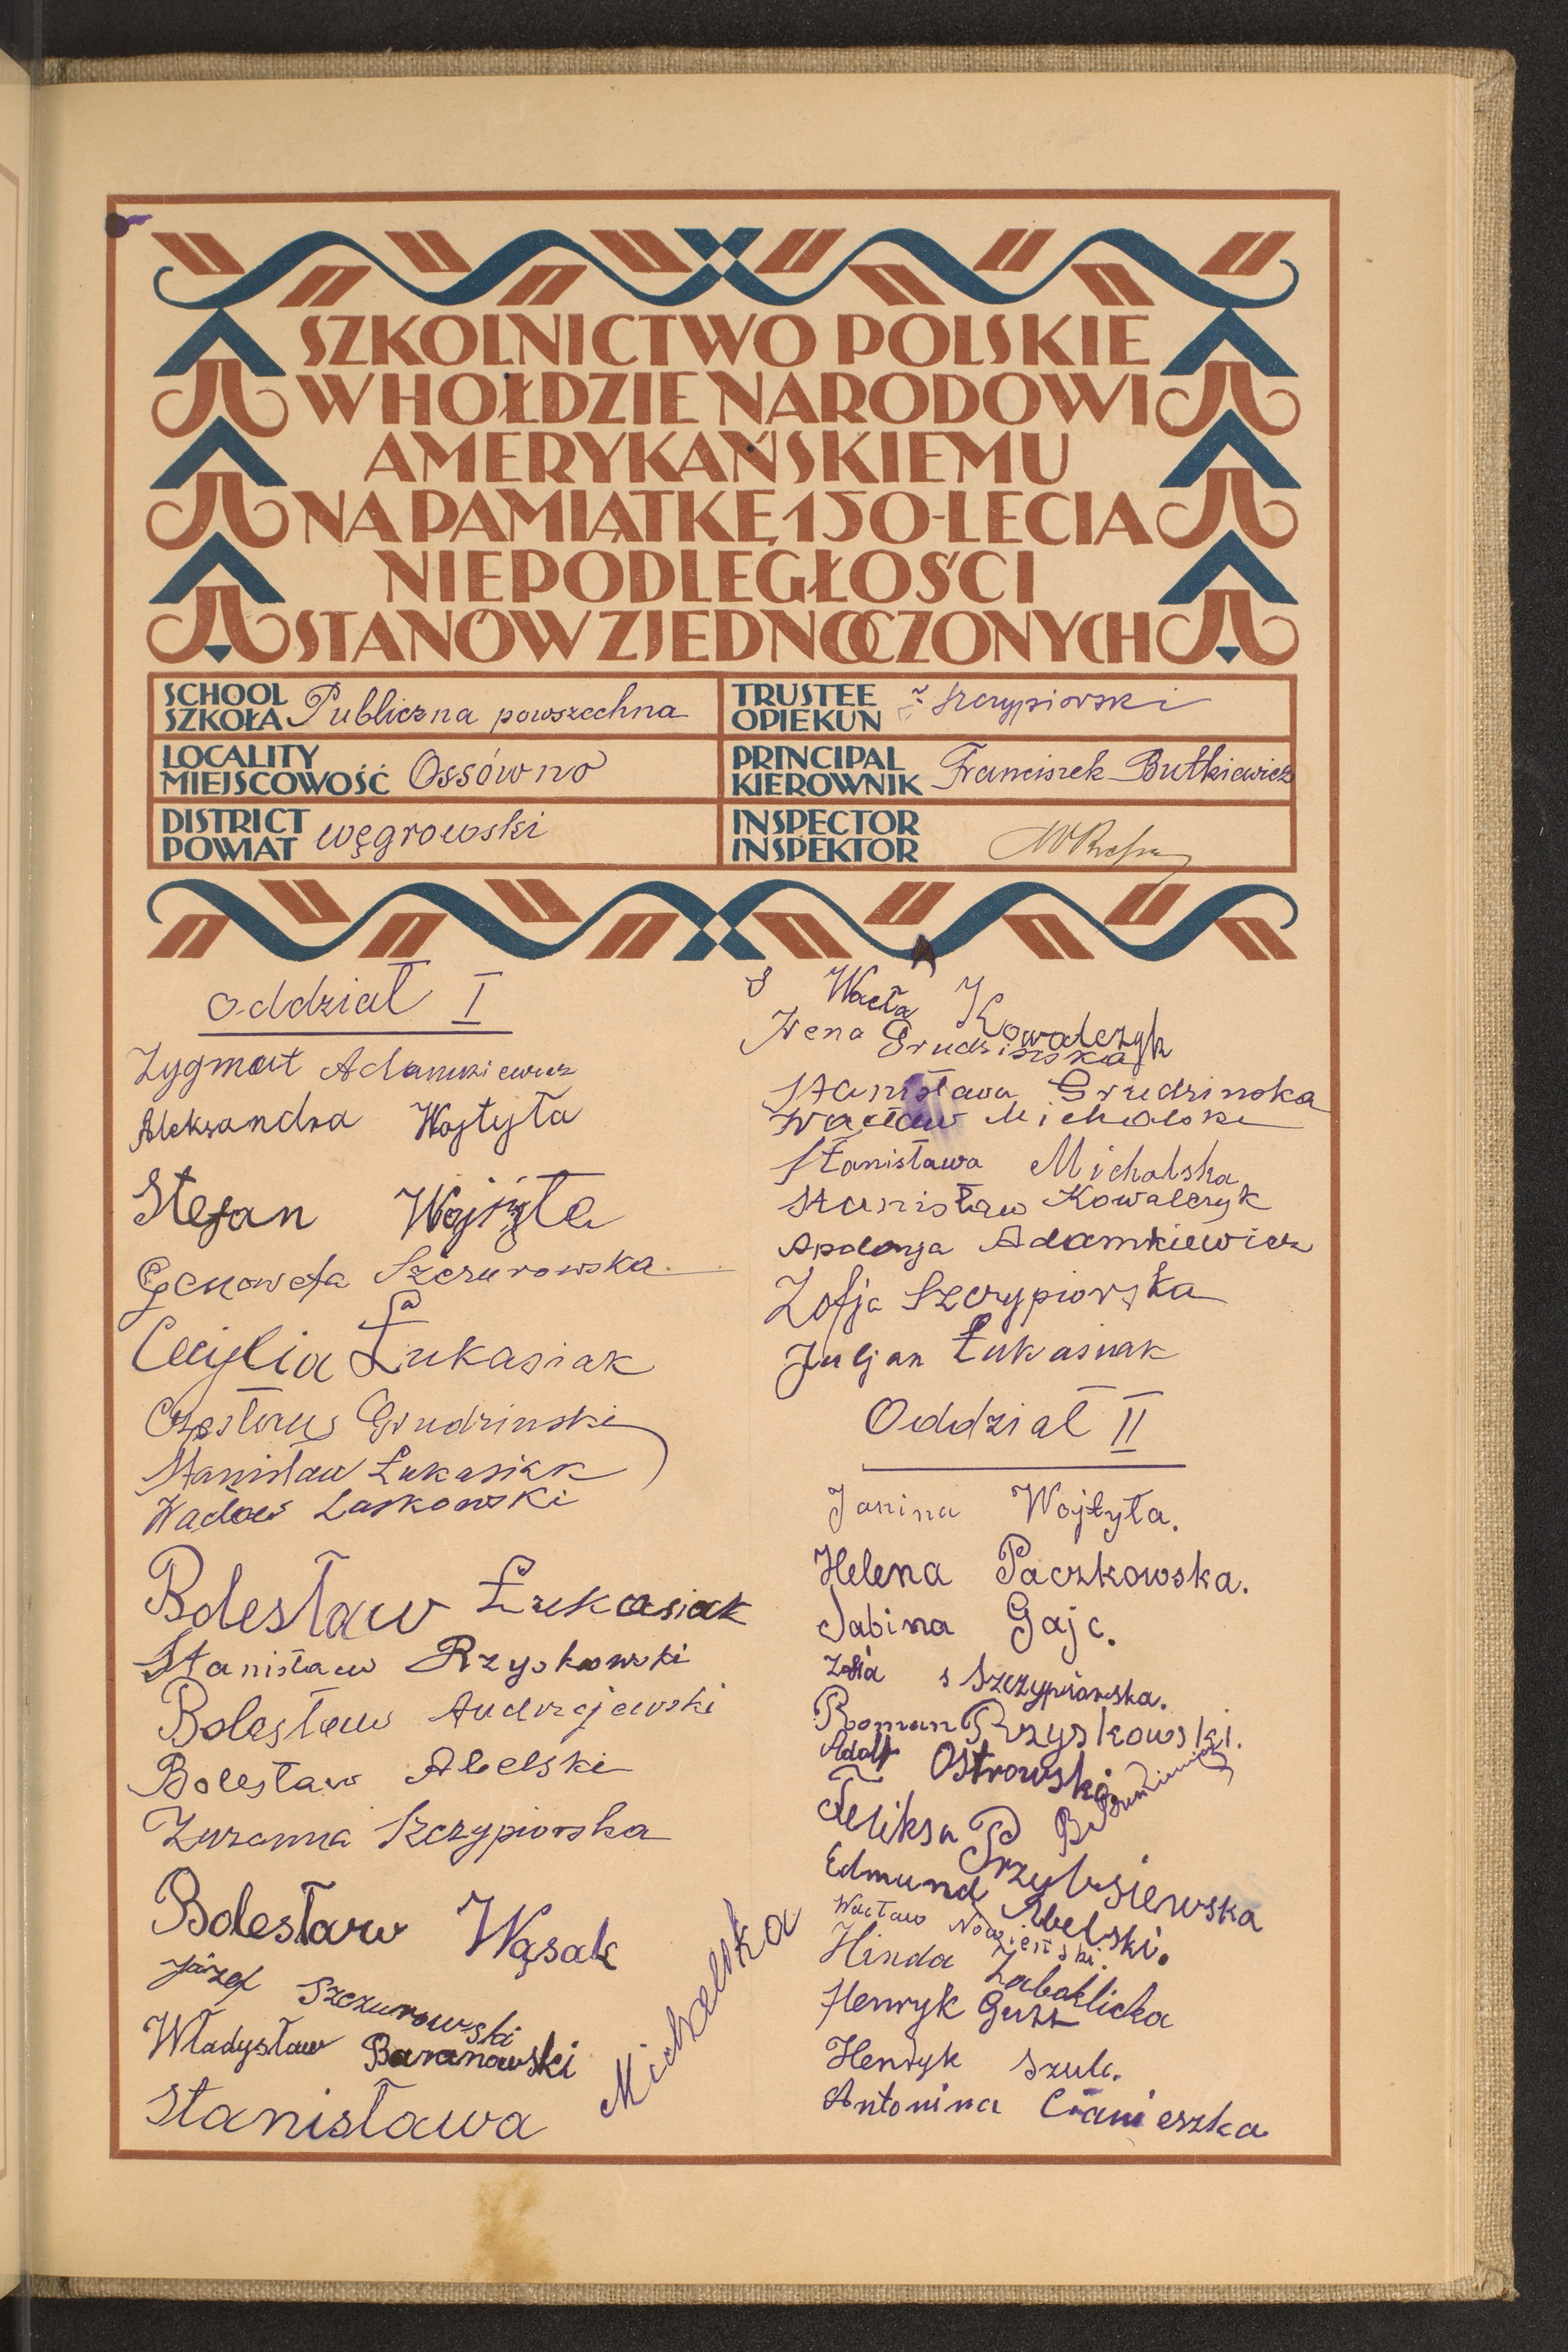 SZKOLNICTWO POLSKIE
W HOŁDZIE NARODOWI
AMERYKAŃSKIEMU
NA PAMIĄTKĘ 150-LECIA
NIEPODLEGŁOŚCI
STANÓW ZJEDNOCZONYCH
SCHOOL
SZKOŁA Publiczna powszechna
TRUSTEE
OPIEKUN Szczypiorski
LOCALITY
MIEJSCOWOŚĆ Ossówno
PRINCIPAL
KIEROWNIK Franciszek Butkiewicz
DISTRICT
POWIAT węgrowski
INSPECTOR
INSPEKTOR
Oddział I
Zygmut Adamkiewicz
Aleksandra Wojtyła
Stefan
Genowefa Szczurowska
Łukasiak
Grudzinski
Stanisław Łukasiak
Wacław Laskowski
Bolesław Łukasiak
Stanisław Rzyskowski
Bolesław Andrzejewski
Bolesław Abelski
Zuzanna Szczypiorska
Bolesław Wąsak
Józef Szczurowski
Władysław Baranowski
Stanisława Michalska
Wacła Kowalczyk
Irena Grudzinska
Stanisława Grudzinska
Wacław Michalski
Stanisława Michalska
Stanisław Kowalczyk
Apolonja Adamkiewicz
Zofja Szczypiorska
Juljan Łukasiak
Oddział II
Janina Wojtyła.
Helena Paczkowska.
Sabina Gajc.
Zofia Szczypiorska.
Roman Rzyskowski.
Adolf Ostrowski.
Feliksa Przybsiewska
Edmund Abelski.
Wacław
Hinda Zaboklicka
Henryk Guzz
Henryk Szulc.
Antonina